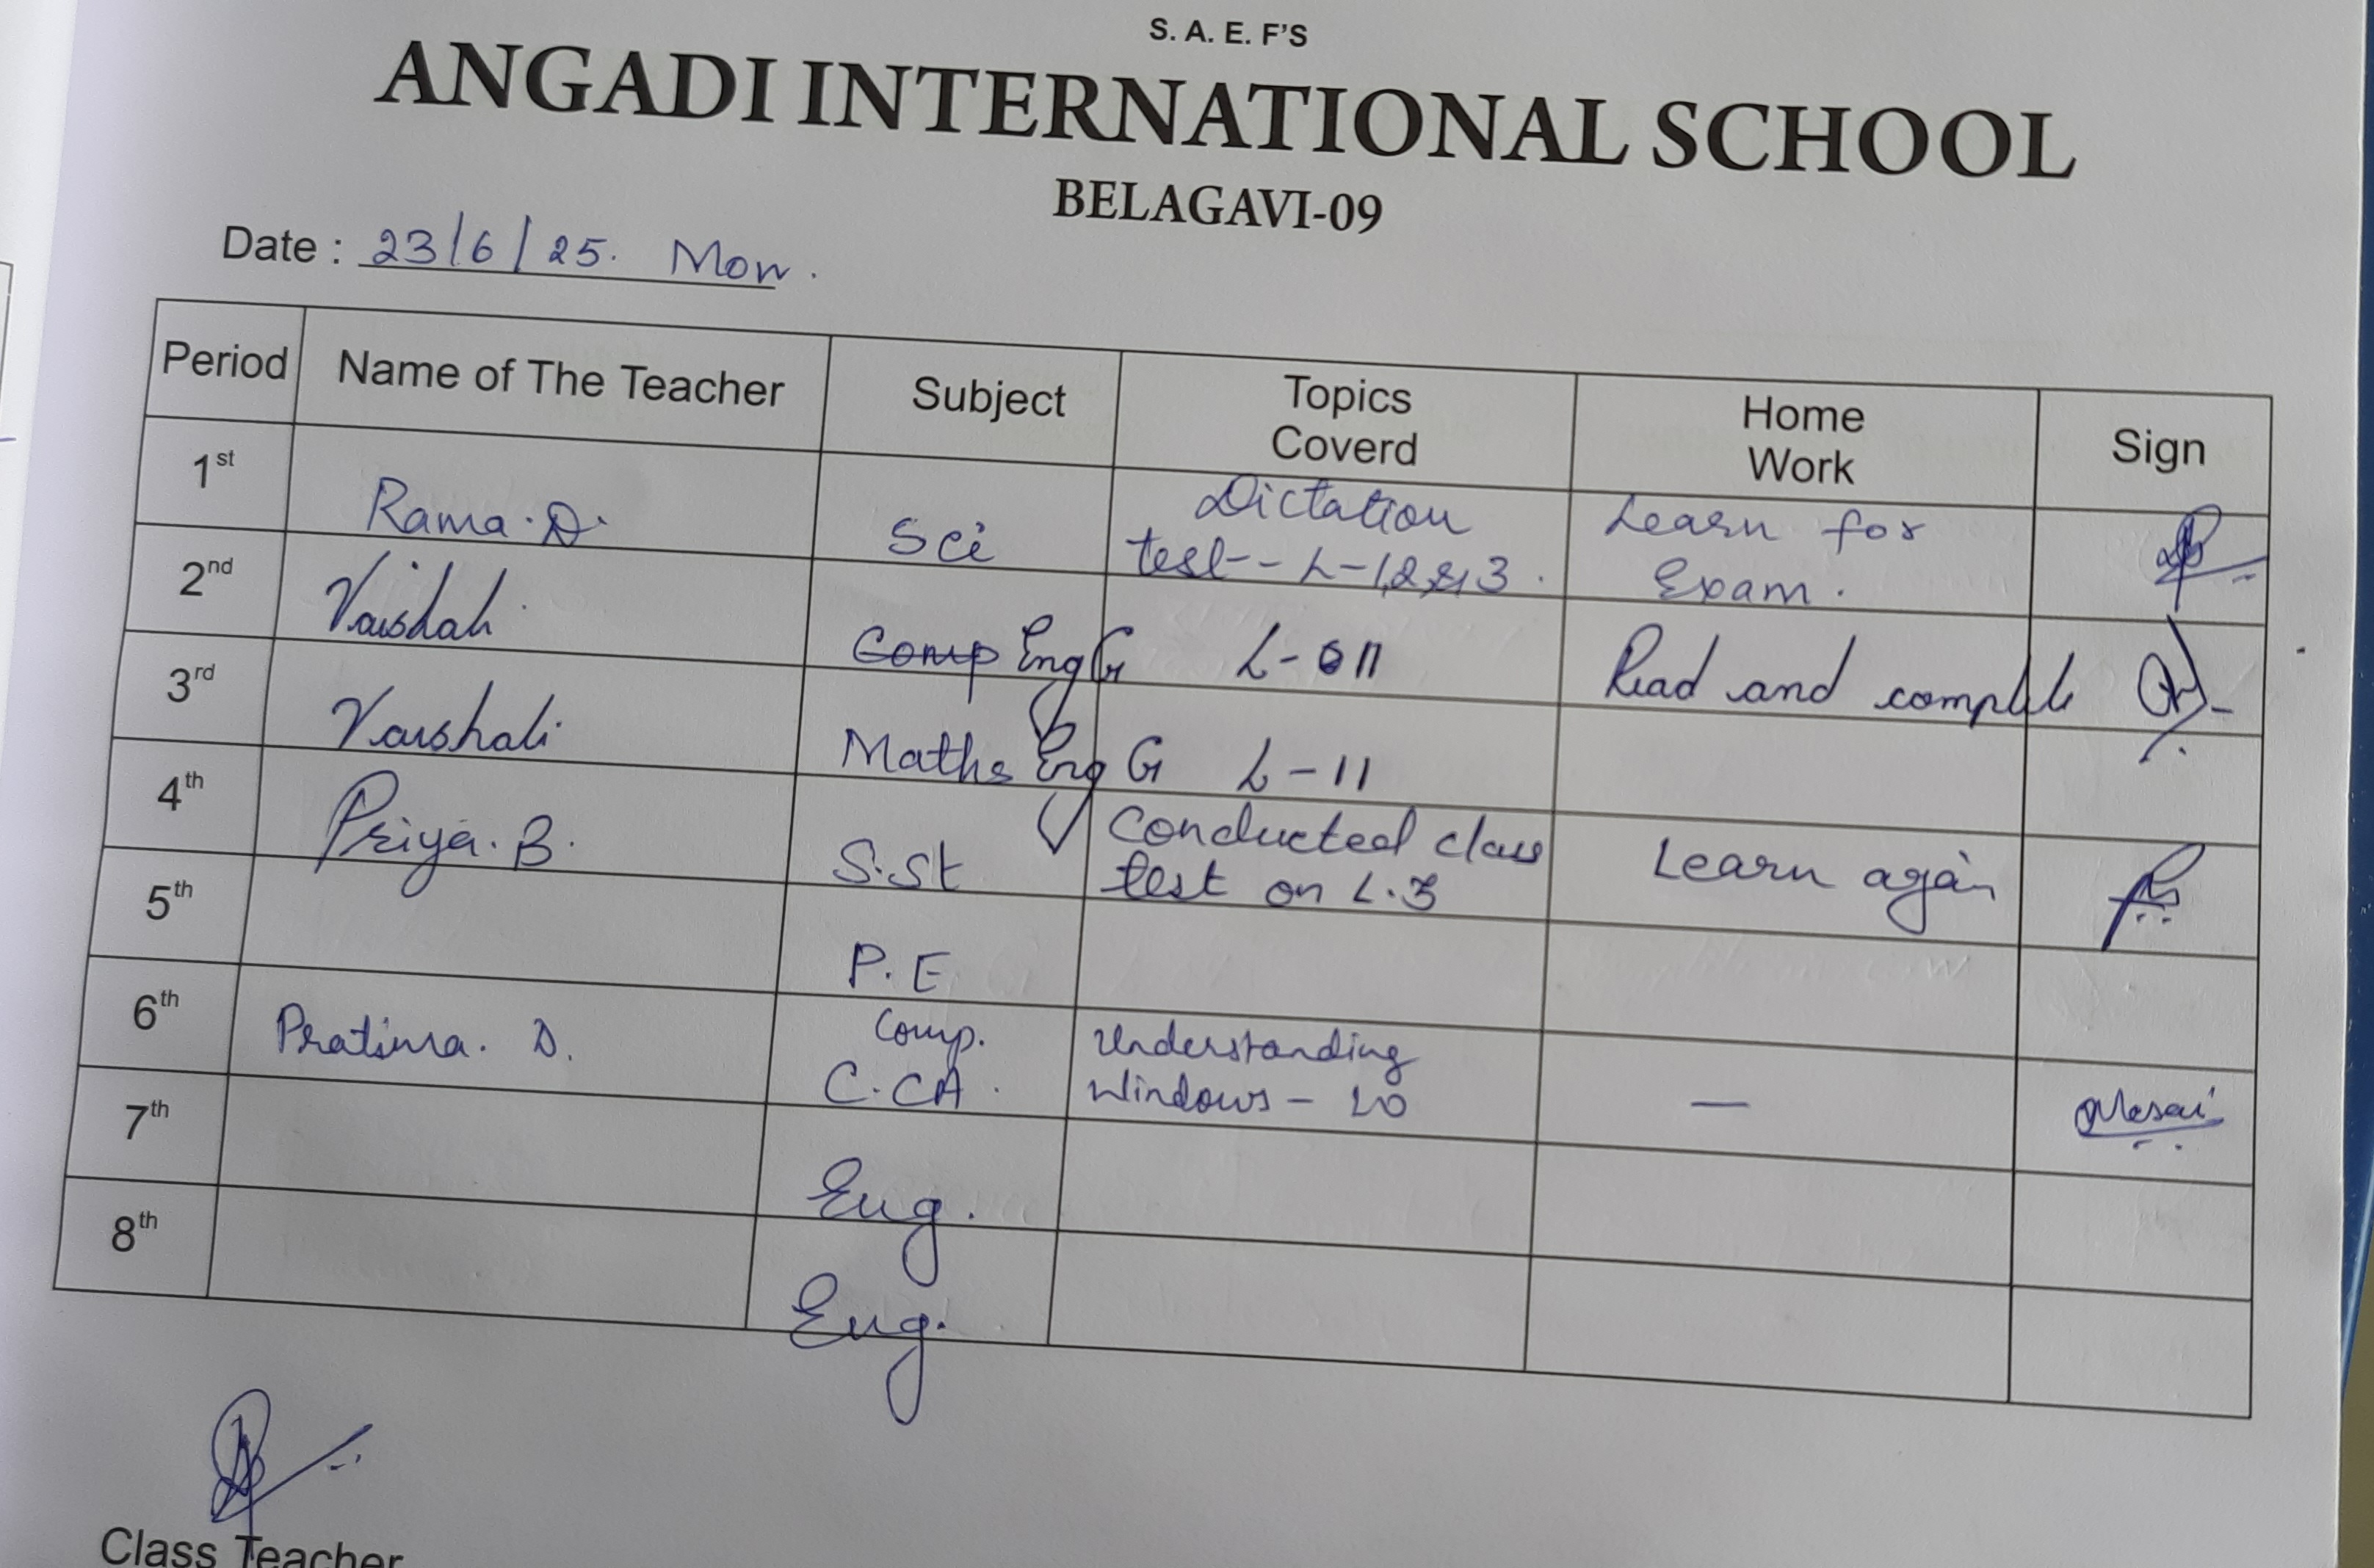 S. A. E. F'S
ANGADI INTERNATIONAL SCHOOL
BELAGAVI-09
Date : 23/6/25. Mon.
Period Name of The Teacher Subject Topics Coverd Home Work Sign
1st Rama. D. Sci Dictation test-- L-1,2,&,3. Learn for Exam.
2nd Vaishali Comp Eng G L-11 Read and complete
3rd Vaishali Maths Eng G L-11
4th Priya. B. S.St Conducted class test on L.3 Learn again
5th P.E
6th Pratima. D. Comp. C.CA. Understanding Windows - 10 —
7th Eng.
8th Eng.
Class Teacher